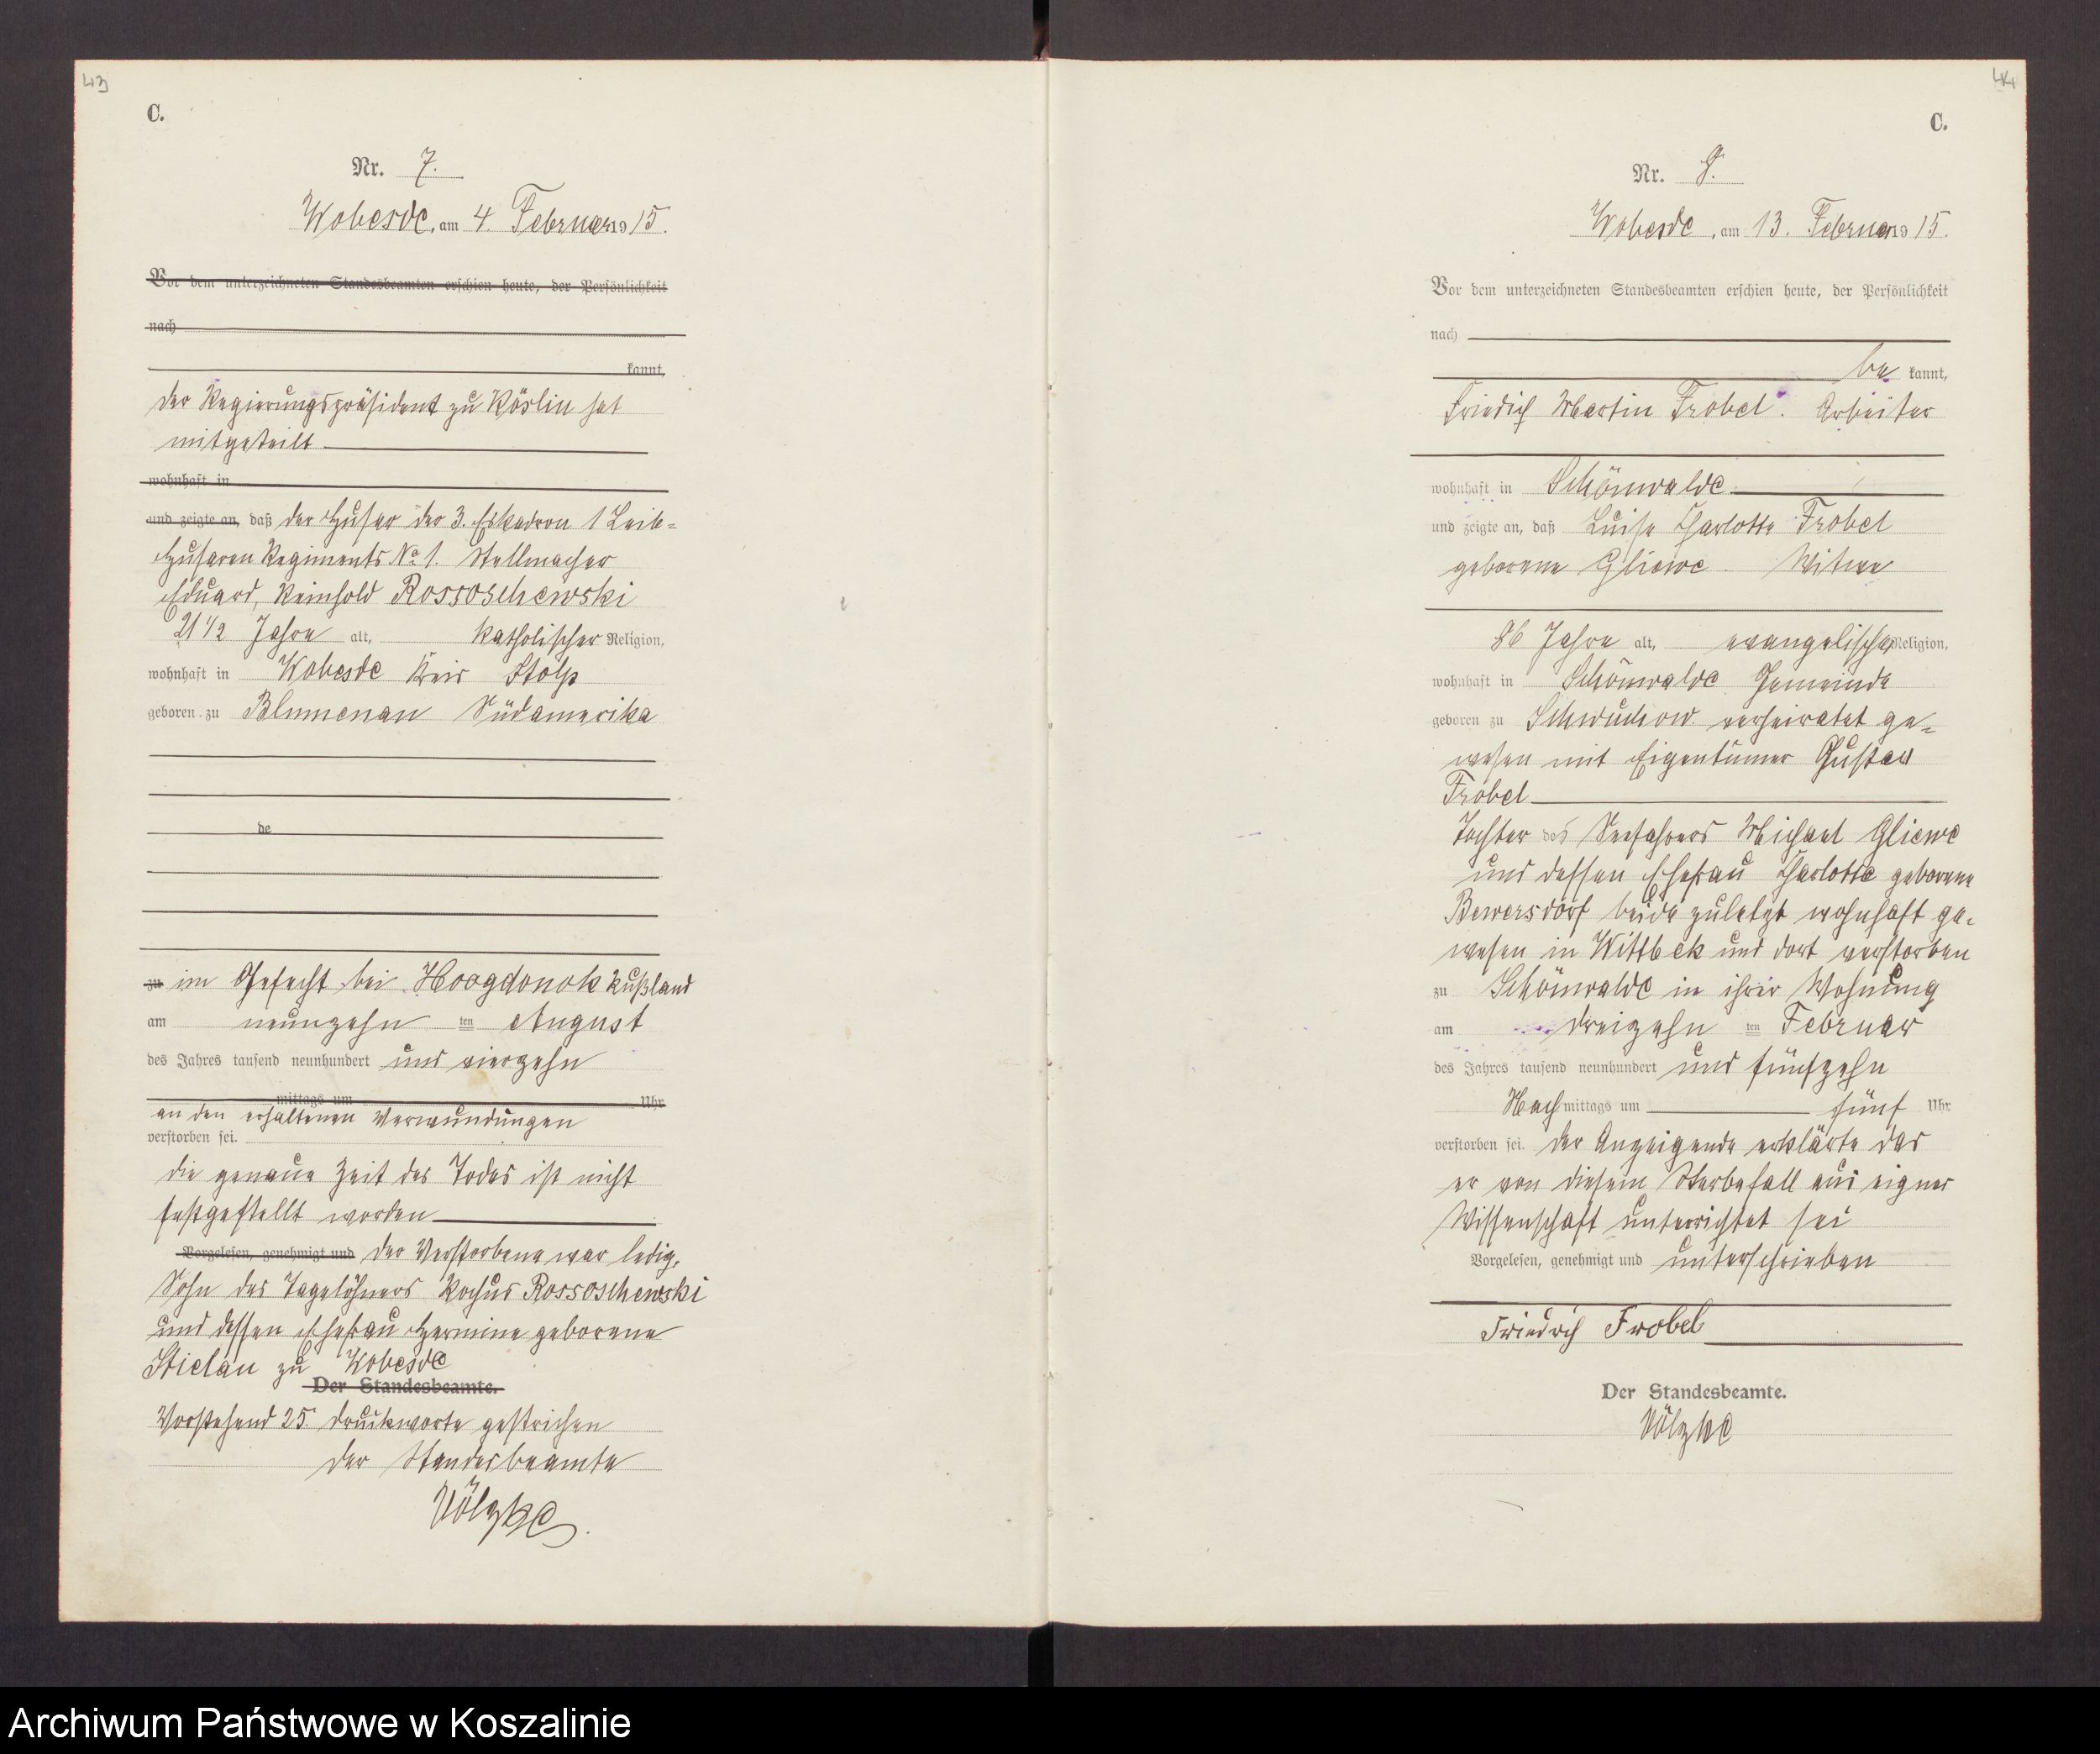 43
C.
Nr. 7.
Wobesde, am 4. Februar 1915.
Vor dem unterzeichneten Standesbeamten erschien heute, der Persönlichkeit
nach
kannt,
Der Regierungspräsident zu Köslin hat
mitgeteilt
wohnhaft in
und zeigte an, daß der Husar der 3. Eskadron 1 Leib=
Husaren Regiments No 1. Stellmacher
Eduard, Reinhold Rossoschewski
21 1/2 Jahre alt, katholischer Religion,
wohnhaft in Wobesde Kreis Stolp
geboren zu Blumenau Südamerika
de
zu im Gefecht bei Hoogdonok Rußland
am neunzehn ten August
des Jahres tausend neunhundert und vierzehn
mittags um Uhr
an den erhaltenen Verwundungen
verstorben sei.
die genaue Zeit des Todes ist nicht
festgestellt worden
Vorgelesen, genehmigt und Der Verstorbene war ledig,
Sohn des Tagelöhners Rochus Rossoschewski
und dessen Ehefrau Hermine geborene
Stielau zu Wobesde
Der Standesbeamte.
Vorstehend 25 Druckworte gestrichen
Der Standesbeamte
Völzke
44
C.
Nr. 8.
Wobesde, am 13. Februar 1915.
Vor dem unterzeichneten Standesbeamten erschien heute, der Persönlichkeit
nach
be kannt,
Friedrich Martin Frobel. Arbeiter
wohnhaft in Schönwalde
und zeigte an, daß Luise Charlotte Frobel
geborene Gliewe. Witwe
86 Jahre alt, evangelischer Religion,
wohnhaft in Schönwalde Gemeinde
geboren zu Schwuchow verheiratet ge=
wesen mit Eigentümer Gustav
Frobel
Tochter des Seefahrers Michael Gliewe
und dessen Ehefrau Charlotte geborene
Bewersdorf beide zuletzt wohnhaft ge=
wesen in Wittbek und dort verstorben
zu Schönwalde in ihrer Wohnung
am dreizehn ten Februar
des Jahres tausend neunhundert und fünfzehn
Nach mittags um fünf Uhr
verstorben sei. Der Anzeigende erklärte das
er von diesem Sterbefall aus eigner
Wissenschaft unterrichtet sei
Vorgelesen, genehmigt und unterschrieben
Friedrich Frobel
Der Standesbeamte.
Völzke
Archiwum Państwowe w Koszalinie